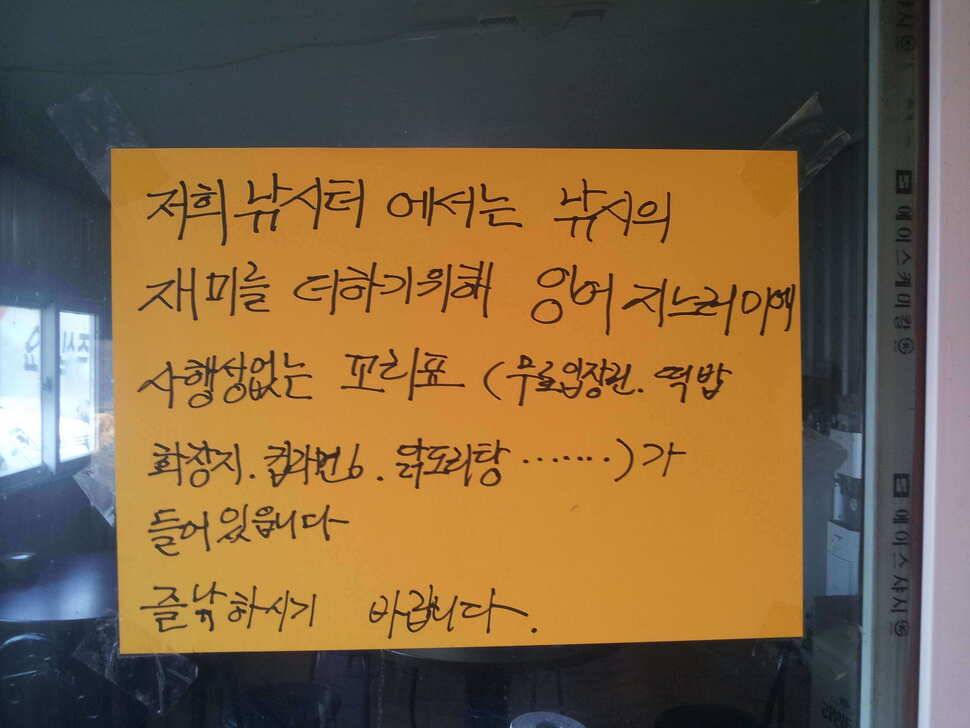 저희 낚시터 에서는 낚시의
재미를 더하기위해 잉어 지느러미에
사행성없는 꼬리표 (무료입장권. 떡밥
화장지. 컵라면. 닭도리탕 .......)가
들어있읍니다
즐낚하시기 바랍니다.
에이스케미칼
에이스샤시